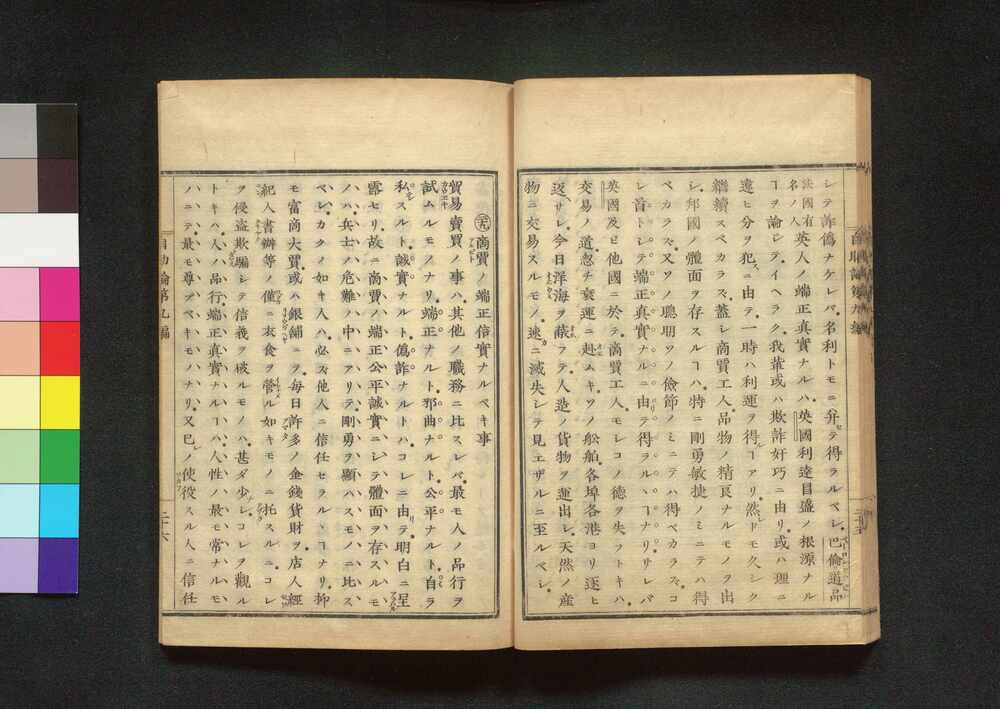 シテ詐偽ナケレバ名利トモニ弁セテ得ラルベシ巴倫道品
法国有名ノ人英人ノ端正真実ナルハ英國利達日盛ノ根源ナル
ヿヲ論シテイヘラク我輩或ハ欺詐奸巧ニ由リ或ハ理ニ
違ヒ分ヲ犯ニ由テ一時ハ利運ヲ得ルヿアリ然ドモ久シク
繼續スベカラズ蓋シ商賈工人品物ノ精良ナルモノヲ出
シ邦國ノ體面ヲ存スルハ特ニ剛勇敏捷ノミニテハ得
ベカラズ又ソノ聰明ソノ儉節ノミニテハ得ベカラズコ
レ首トシテ端正真実ナルニ由テ得ラルヽヿナリサレバ
英國及ビ他國ニ於テ商賈工人モシコノ德ヲ失フトキハ
交易ノ道忽チ衰運ニ赴ムキソノ舩舶各埠各港ヨリ逐ヒ
返サレ今日洋海ヲ蔽フテ人造ノ貨物ヲ運出シ天然ノ産
物ニ交易スルモノ速ニ滅失シテ見エザルニ至ルベシ
商賈ノ端正信實ナルベキ事
貿易賣買ノ事ハ其他ノ職務ニ比スレバ最モ人ノ品行ヲ
試ムルモノナリ端正ナルト邪曲ナルト公平ナルト自ラ
私スルト誠實ナルト偽詐ナルトハコレニ由テ明白ニ呈
露セリ故ニ商賈ノ端正公平誠實ニシテ體面ヲ存スルモ
ノハ兵士ノ危難ノ中ニアリテ剛勇ヲ顯ハスモノニ比ス
ベシカクノ如キ人ハ必ズ他人ニ信任セラルヽヿナリ抑
モ富商大賈或ハ銀舗ニヲ毎日許多ノ金錢貨財ヲ店人經
紀人書辦等ノ僅ニ衣食ヲ營ル如キモノニ托スルニコレ
ヲ侵盗欺騙シテ信義ヲ破ルモノハ甚ダ少シコレヲ觀ル
トキハ人ハ品行端正真実ナルハ人性ノ最モ常ナルモ
ハニテ最モ尊ブベキモノハナリ又已レノ使役スル人ニ信任